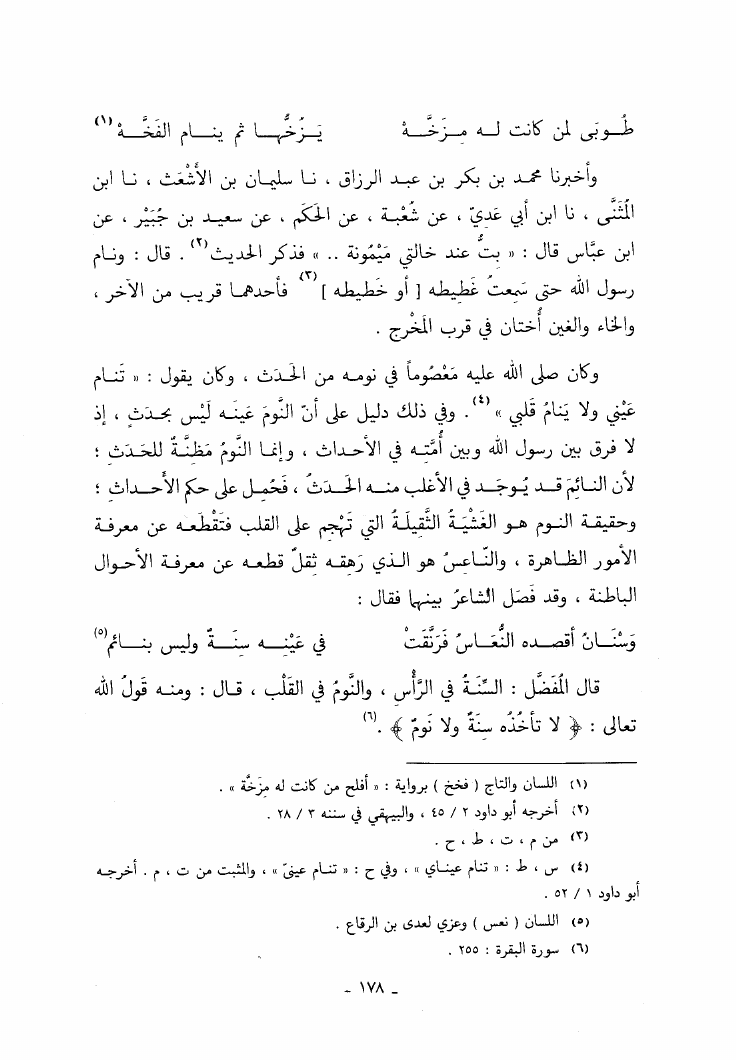 طُـوبَى لمن كانت لـه مِـزَخَّـهْ يَـزُخُّهـا ثم ينـام الفَخَّـهْ (١)
وأخبرنا محمد بن بكر بن عبد الرزاق ، نـا سليمان بن الأَشْعَث ، نـا ابن
المُثَنَّى ، نا ابن أبي عَدِيّ ، عن شُعْبـة ، عن الحَكَم ، عن سعيـد بن جُبَيْر ، عن
ابن عبَّاس قال : « بِتُّ عند خالتي مَيْمُونة .. » فذكر الحديث (٢) . قال : ونـام
رسول الله حتى سَمِعتُ غَطيطه [ أو خَطيطه ] (٣) فأحدهمـا قريب من الآخر ،
والخاء والغين أُختان في قرب المَخْرج .
وكان صلى الله عليه مَعْصُوماً في نومـه من الحَـدَث ، وكان يقول : « تَنـام
عَيْني ولا يَنامُ قَلبي » (٤) . وفي ذلك دليل على أنّ النَّومَ عَينَـه لَيْس بحَدثٍ ، إذ
لا فرق بين رسول الله وبين أُمَّتِـه في الأحداث ، وإنمـا النَّومُ مَظِنَّـةٌ للحَدَثِ ؛
لأن النـائِمَ قـد يُـوجَـد في الأغلب منـه الحَـدَثُ ، فَحُمِـل على حكم الأحـداثِ ؛
وحقيقـة النـوم هـو الغَشْيَـةُ الثَّقِيلَـةُ التي تَهْجِم على القلب فتَقْطَعـه عن معرفـة
الأمور الظـاهرة ، والنّـاعِسُ هو الـذي رَهِقـه ثِقلٌ قطعـه عن معرفة الأحـوال
البـاطنة ، وقد فَصَل الشاعرُ بينهـا فقال :
وَسْنَـانُ أقصـده النُّعَـاسُ فَرَنَّقَتْ في عَيْنِـه سِنَـةٌ وليس بنـائم (٥)
قال المُفَضَّل : السِّنَةُ في الرَّأْس ، والنَّومُ في القَلْب ، قـال : ومنـه قَولُ الله
تعالى : ﴿ لا تأخُذُه سِنَةٌ ولا نَومٌ ﴾ . (٦)
(١) اللسان والتاج ( فخخ ) برواية : « أفلح من كانت له مِزَخَّة » .
(٢) أخرجه أبو داود ٢ / ٤٥ ، والبيهقي في سننه ٣ / ٢٨ .
(٣) من م ، ت ، ط ، ح .
(٤) س ، ط : « تنام عينـاي » ، وفي ح : « تنـام عينيّ » ، والمثبت من ت ، م . أخرجـه
أبو داود ١ / ٥٢ .
(٥) اللسان ( نعس ) وعزي لعدى بن الرقاع .
(٦) سورة البقرة : ٢٥٥ .
ـ ١٧٨ ـ